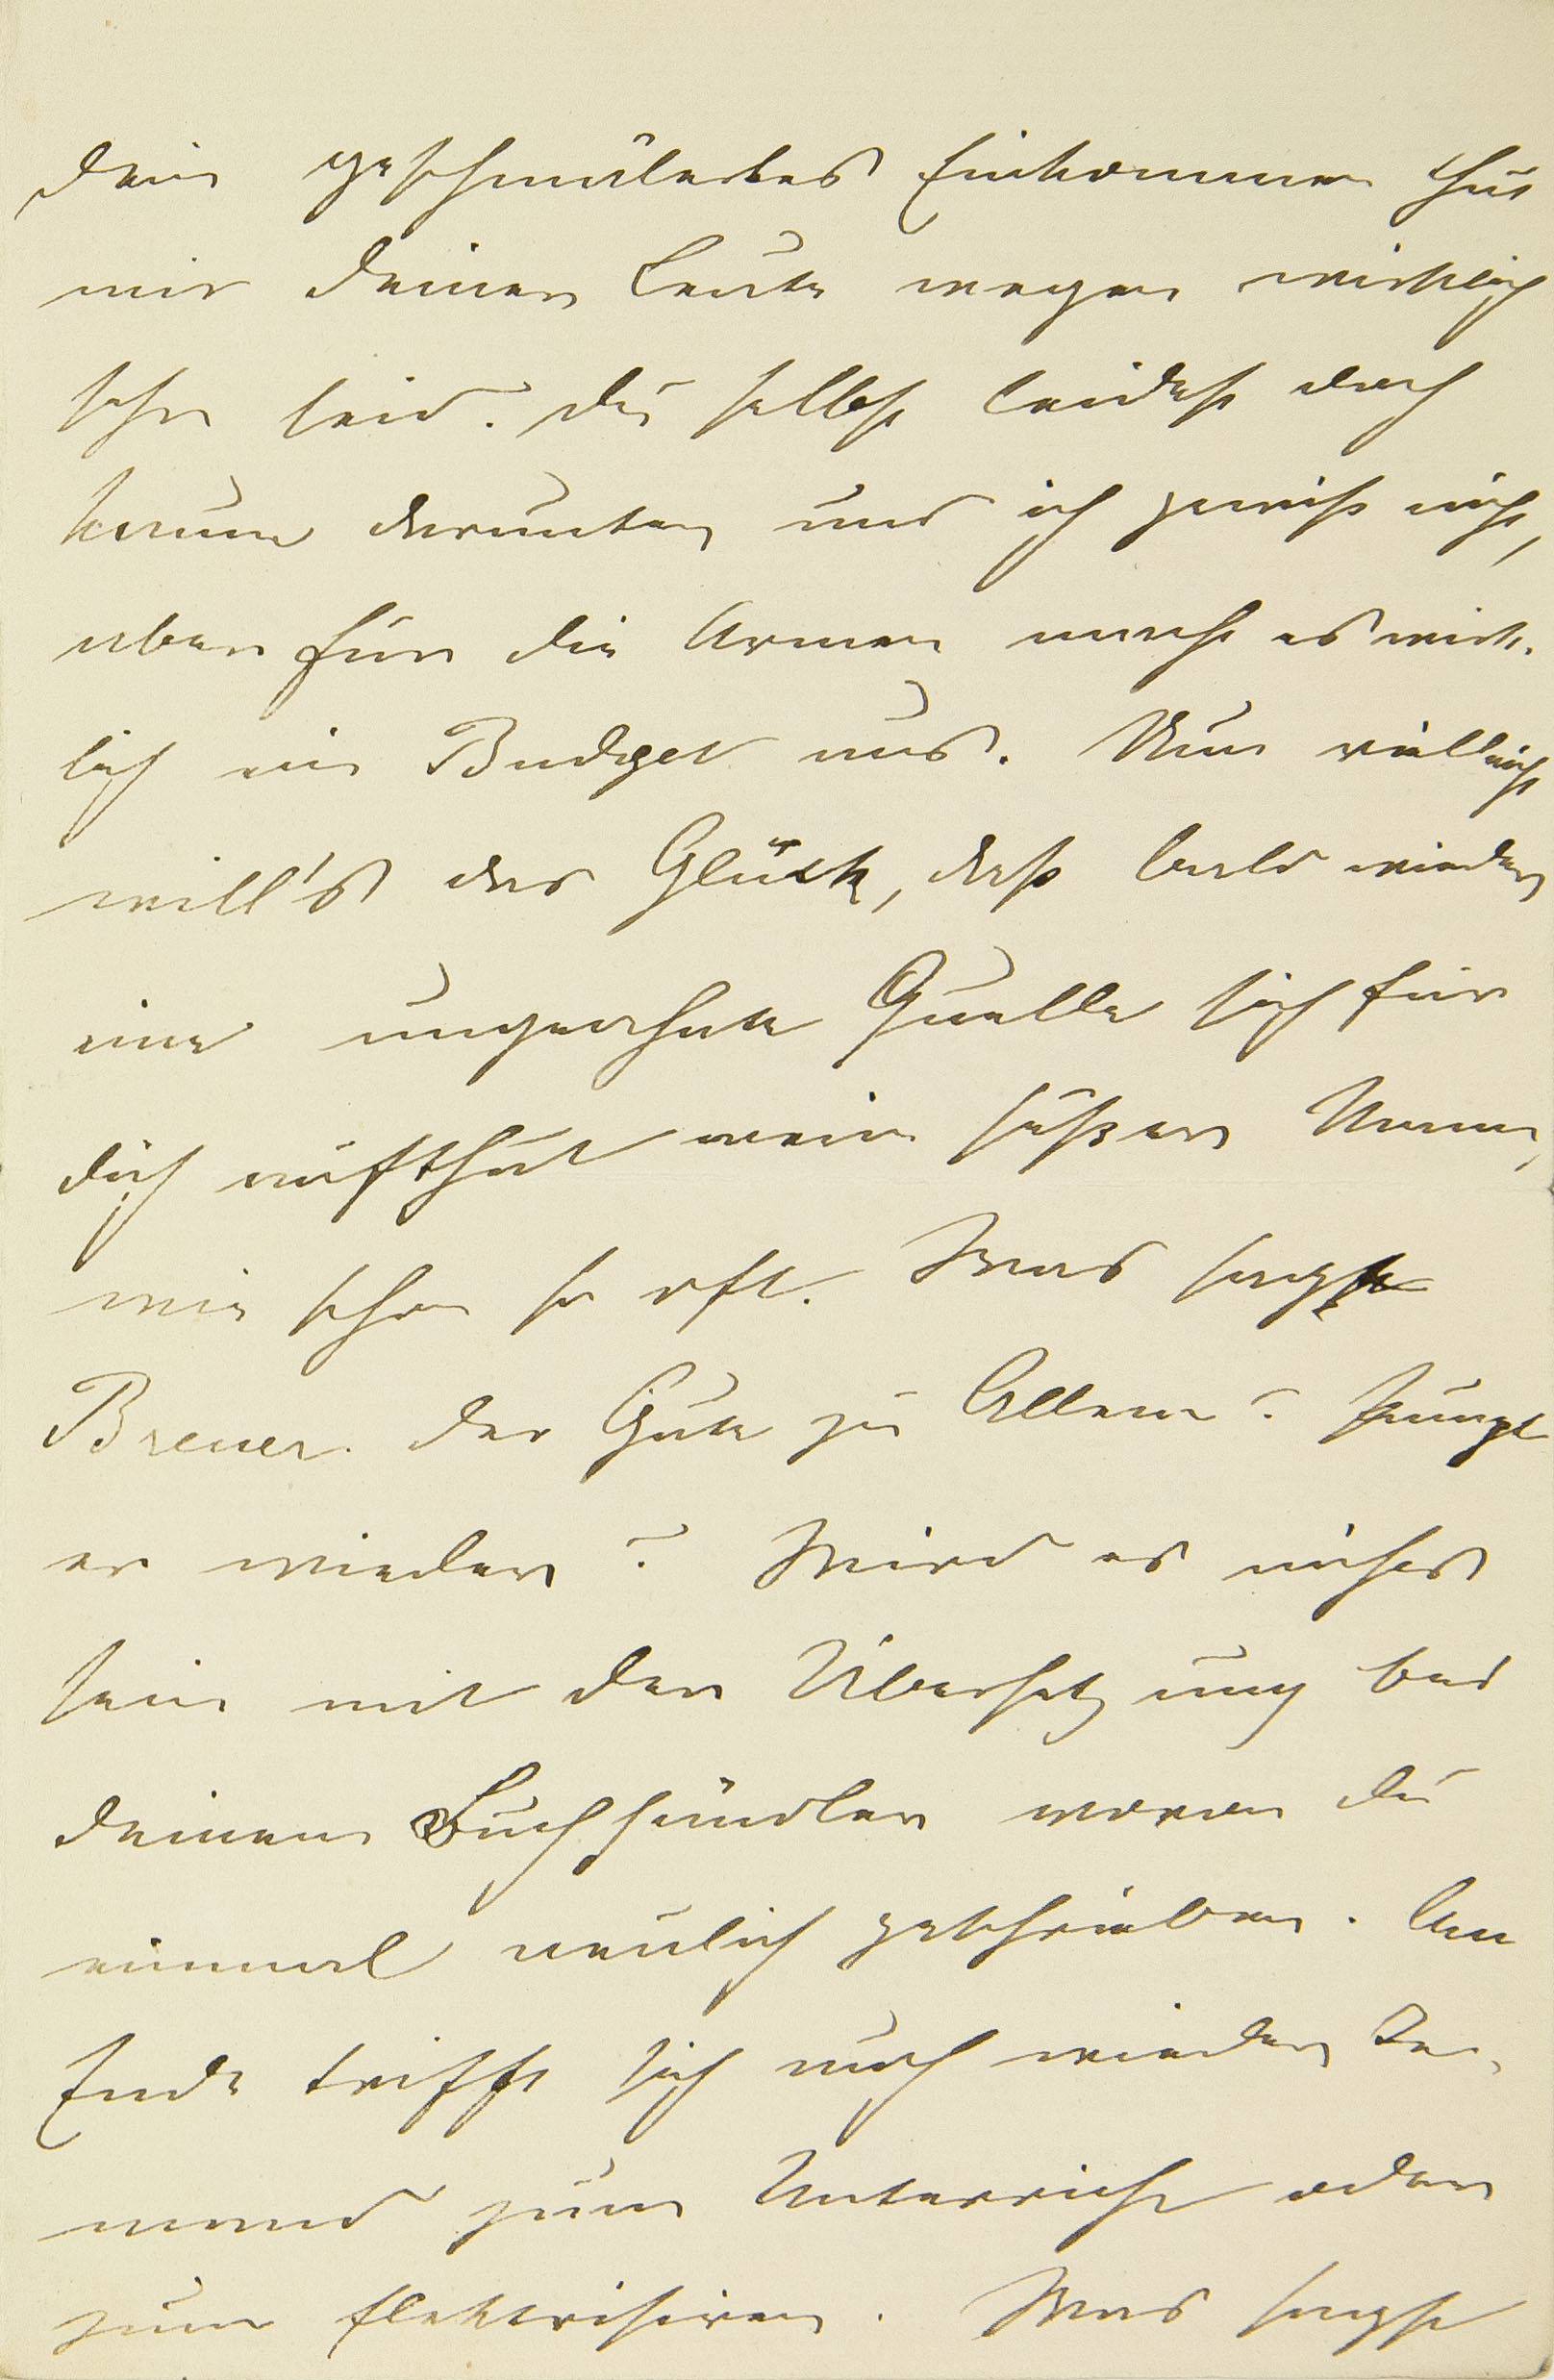 Dein geschmälertes Einkommen thut
mir Deiner Leute wegen wirklich
sehr leid. Du selbst leidest doch
kaum darunter und ich gewiß nicht,
aber für die Armen macht es wirk-
lich ein Budget aus. Nun vielleicht
will's das Glück, daß bald wieder
eine ungeahnte Quelle sich für
dich aufthut mein süßer Mann,
wie schon so oft. Was sagt
Breuer der Gute zu Allem?
er wieder? Wird es nichts
sein mit der Übersetzung bei
Deinem Buchhändler wovon Du
einmal neulich geschrieben. Am
Ende trifft sich auch wieder Je-
mand zum Unterricht oder
zum Elektrisiren. Was sagst